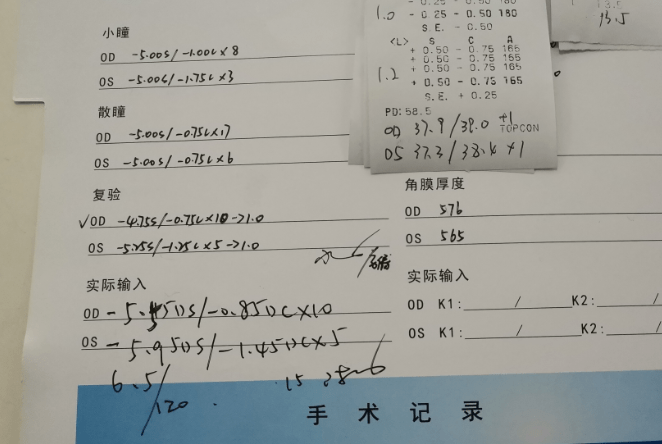 小瞳
OD -5.00S/-1.00C×8
OS -5.00S/-1.75C×3
散瞳
OD -5.00S/-0.75C×17
OS -5.00S/-0.75C×6
复验
√OD -4.75S/-0.75C×10→1.0
OS -5.25S/-1.25C×5→1.0
实际输入
OD -5.45DS/-0.85DC×10
OS -5.95DS/-1.45DC×5
6.5/120
1.0 - 0.25 - 0.50 180
S.E. - 0.50
<L> S C A
+ 0.50 - 0.75 165
+ 0.50 - 0.75 155
+ 0.50 - 0.75 165
1.2 + 0.50 - 0.75 165
S.E. + 0.25
PD: 58.5
TOPCON
OD 37.9/38.0 +1
OS 37.3/38.4 ×1
13.5
角膜厚度
OD 576
OS 565
实际输入
OD K1: / K2: /
OS K1: / K2: /
手术记录